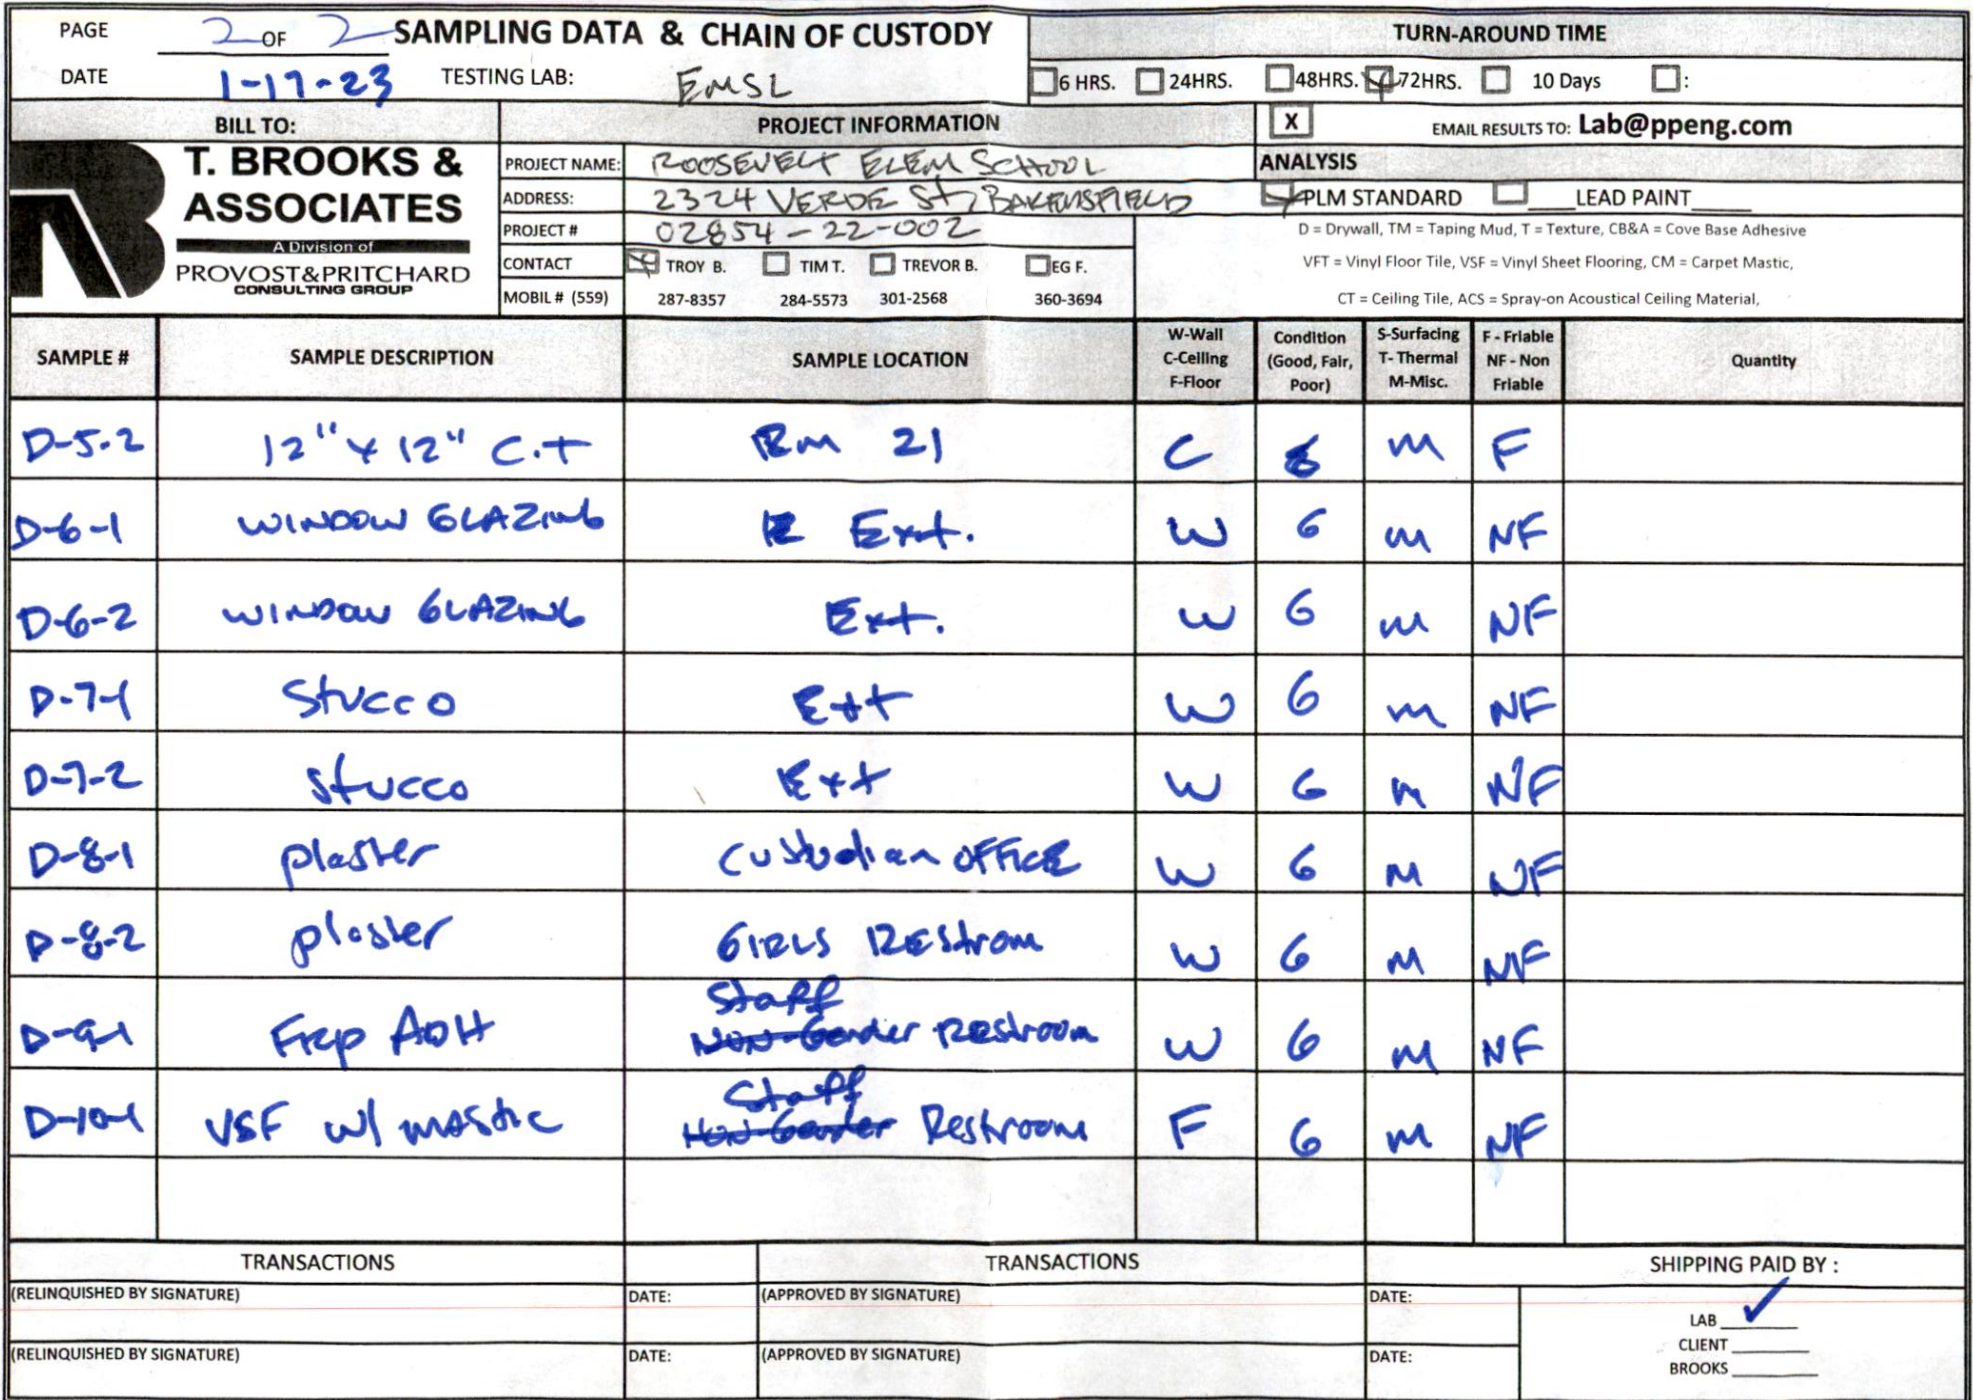 PAGE 2 OF 2 SAMPLING DATA & CHAIN OF CUSTODY
TURN-AROUND TIME
DATE 1-17-23 TESTING LAB: EMSL
6 HRS. 24HRS. 48HRS. 72HRS. 10 Days :
BILL TO:
PROJECT INFORMATION
X EMAIL RESULTS TO: Lab@ppeng.com
T. BROOKS &
ASSOCIATES
A Division of
PROVOST&PRITCHARD
CONSULTING GROUP
PROJECT NAME: ROOSEVELT ELEM SCHOOL
ADDRESS: 2324 VERDE St, BAKERSFIELD
PROJECT # 02854-22-002
CONTACT TROY B. TIM T. TREVOR B. EG F.
MOBIL # (559) 287-8357 284-5573 301-2568 360-3694
ANALYSIS
PLM STANDARD LEAD PAINT
D = Drywall, TM = Taping Mud, T = Texture, CB&A = Cove Base Adhesive
VFT = Vinyl Floor Tile, VSF = Vinyl Sheet Flooring, CM = Carpet Mastic,
CT = Ceiling Tile, ACS = Spray-on Acoustical Ceiling Material,
SAMPLE # SAMPLE DESCRIPTION SAMPLE LOCATION
W-Wall
C-Ceiling
F-Floor
Condition
(Good, Fair,
Poor)
S-Surfacing
T- Thermal
M-Misc.
F - Friable
NF - Non
Friable
Quantity
D-5-2 12" x 12" C.T Rm 21 C G M F
D-6-1 WINDOW GLAZING Ext. W G M NF
D-6-2 WINDOW GLAZING Ext. W G M NF
D-7-1 Stucco Ext W G M NF
D-7-2 Stucco Ext W G M NF
D-8-1 plaster Custodian OFFICE W G M NF
D-8-2 plaster GIRLS REStroom W G M NF
Staff
D-9-1 Frp ADH Non-Gender Restroom W G M NF
Staff
D-10-1 VSF w/ mastic Non-Gender Restroom F G M NF
TRANSACTIONS
TRANSACTIONS
SHIPPING PAID BY :
(RELINQUISHED BY SIGNATURE) DATE: (APPROVED BY SIGNATURE) DATE:
LAB ✓
CLIENT
BROOKS
(RELINQUISHED BY SIGNATURE) DATE: (APPROVED BY SIGNATURE) DATE: